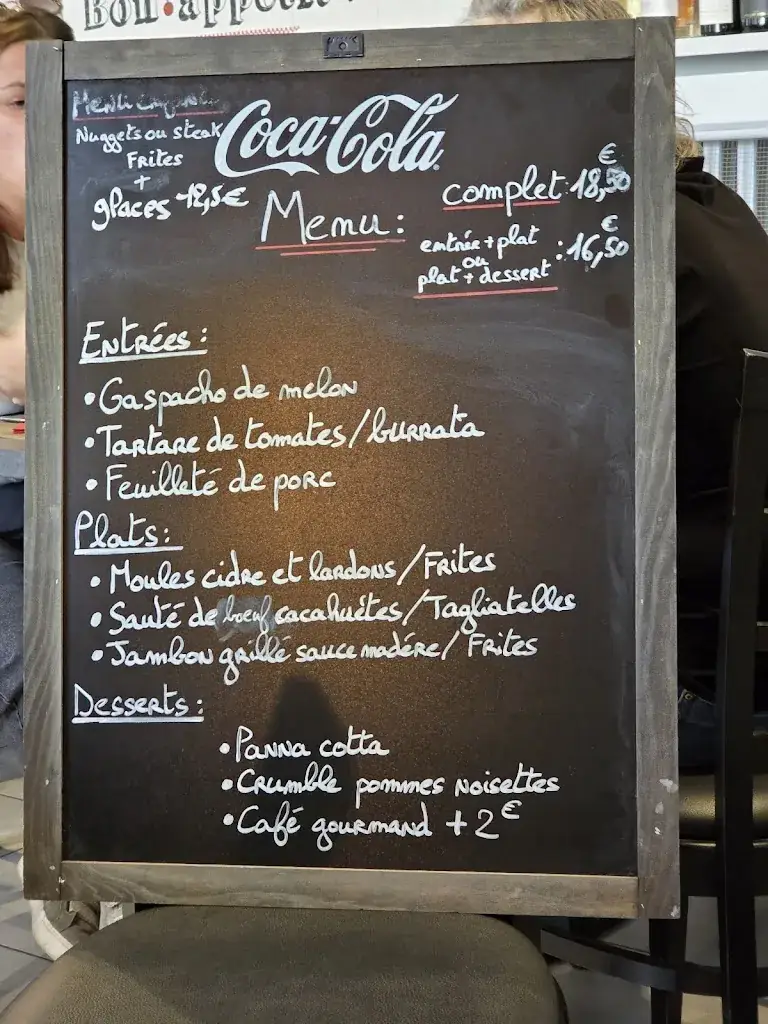 Bon appétit
Menu enfant
Nuggets ou steak
Frites
+
glaces 12,5€
Coca-Cola
Menu:
complet: 18,50€
entrée + plat
ou
plat + dessert : 16,50€
Entrées:
• Gaspacho de melon
• Tartare de tomates/burrata
• Feuilleté de porc
Plats:
• Moules cidre et lardons/Frites
• Sauté de boeuf cacahuètes/Tagliatelles
• Jambon grillé sauce madère/Frites
Desserts:
• Panna cotta
• Crumble pommes noisettes
• Café gourmand + 2€